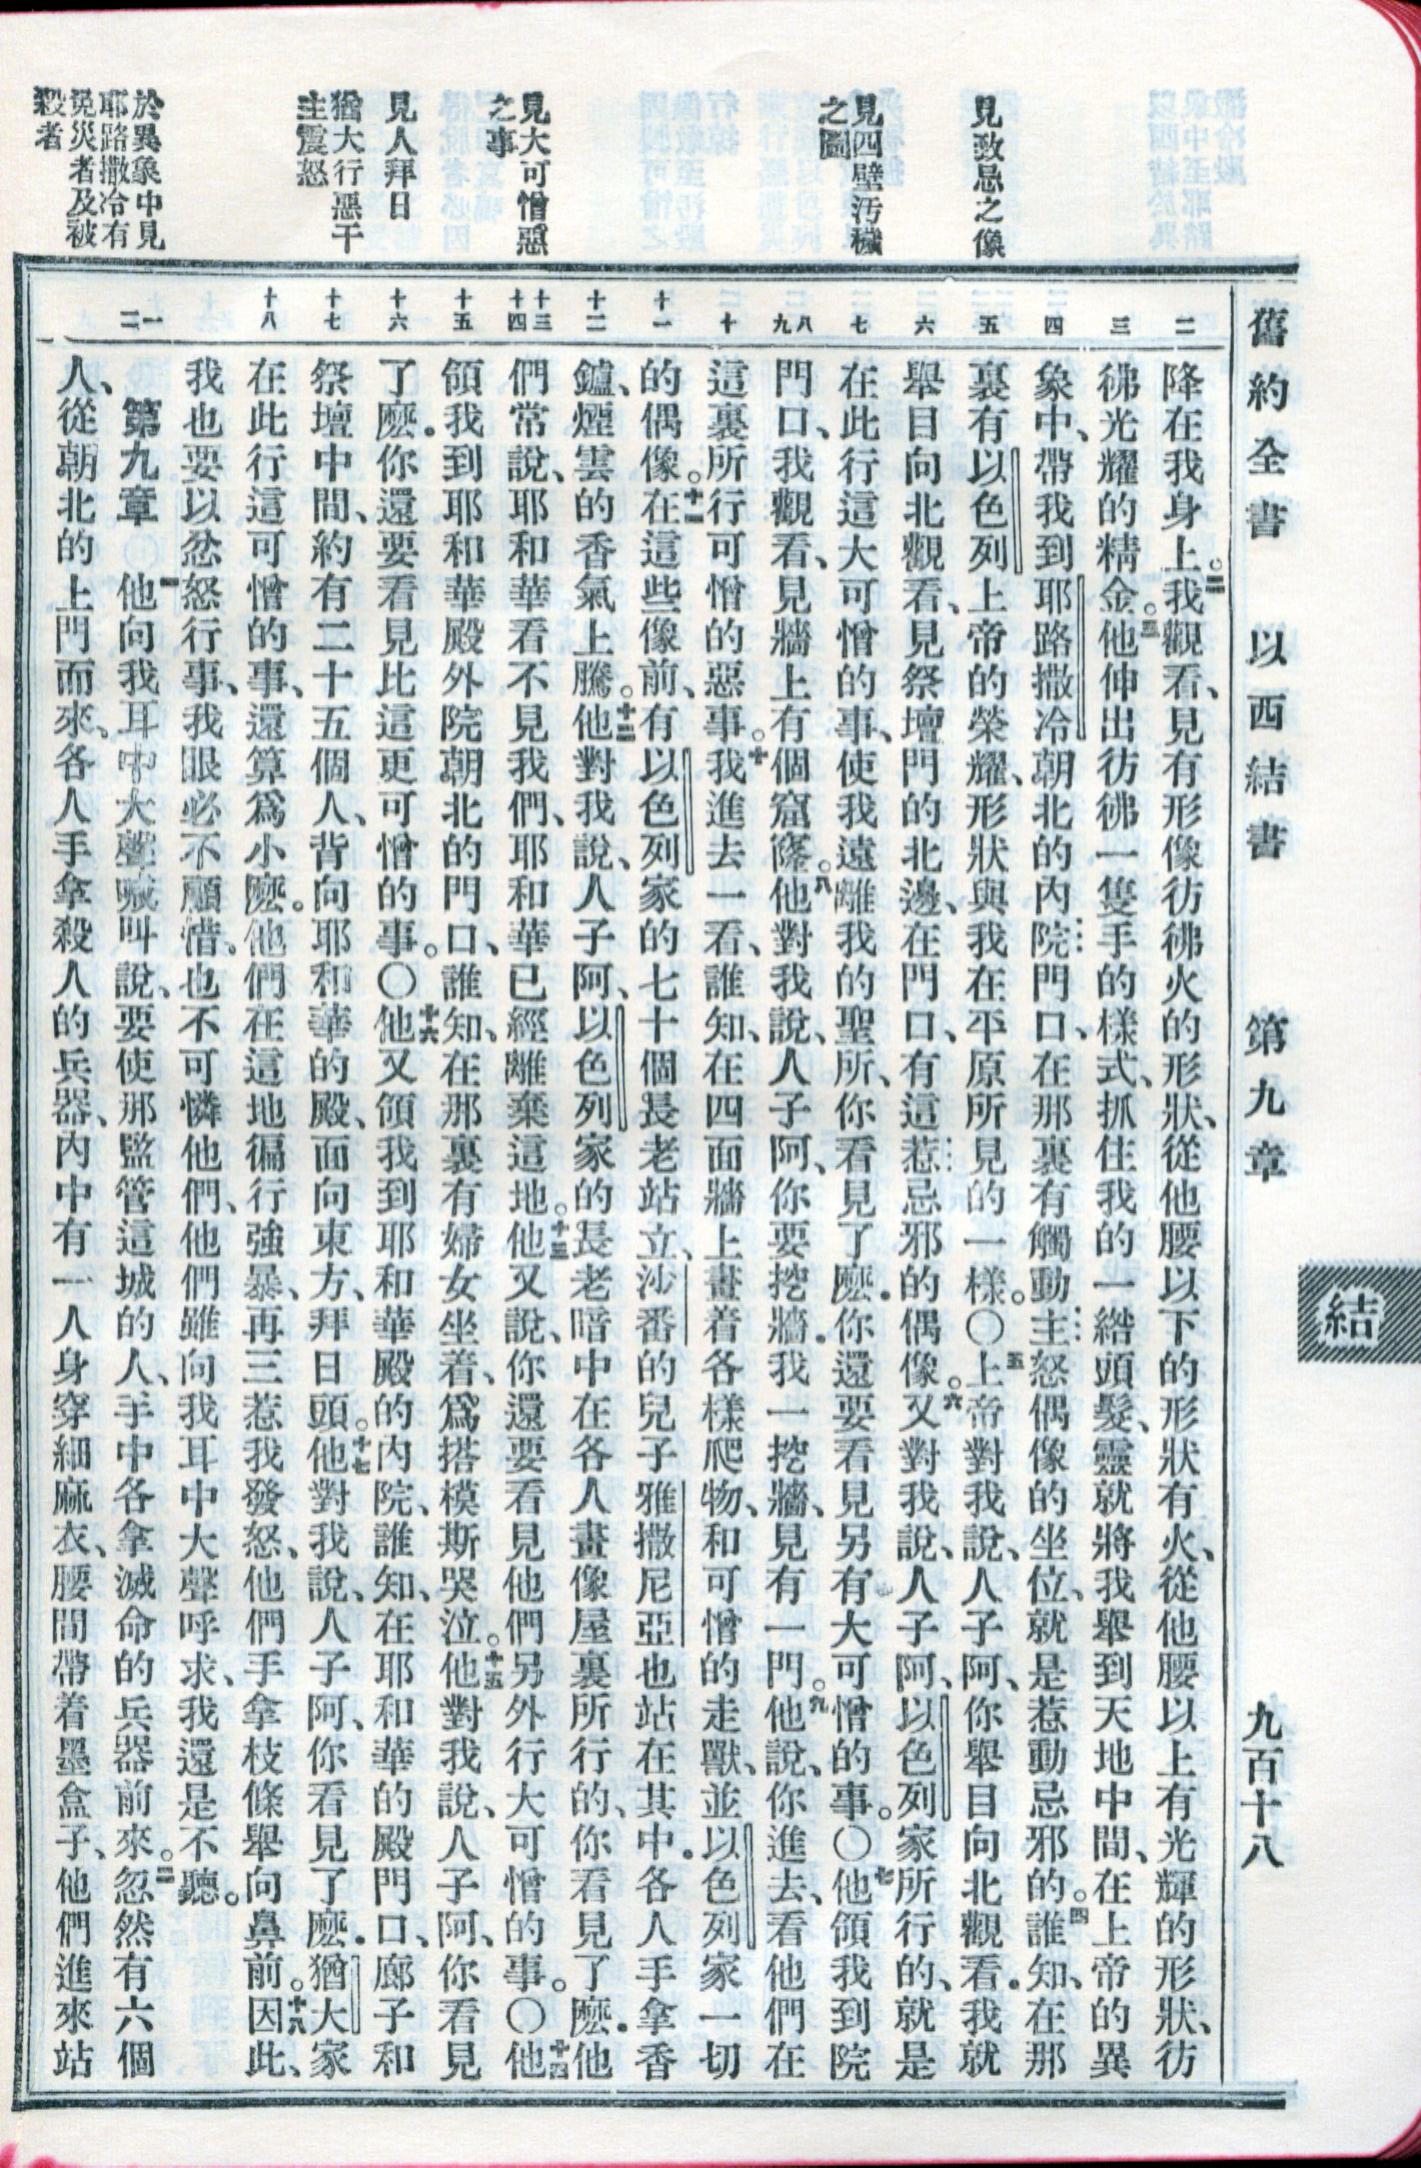 舊約全書　以西結書　第九章　九百十八
結
見致忌之像
見四壁污穢
之圖
見大可憎惡
之事
見人拜日
猶大行惡干
主震怒
於異象中見
耶路撒冷有
免災者及被
殺者
二
三
四
五
六
七
八
九
十
十一
十二
十三
十四
十五
十六
十七
十八
一
二
降在我身上。二我觀看、見有形像彷彿火的形狀、從他腰以下的形狀有火、從他腰以上有光輝的形狀、彷
彿光耀的精金。三他伸出彷彿一隻手的樣式、抓住我的一綹頭髮、靈就將我舉到天地中間、在上帝的異
象中、帶我到耶路撒冷朝北的內院門口、在那裏有觸動主怒偶像的坐位、就是惹動忌邪的。四誰知、在那
裏有以色列上帝的榮耀、形狀與我在平原所見的一樣。〇五上帝對我說、人子阿、你舉目向北觀看．我就
舉目向北觀看、見祭壇門的北邊、在門口、有這惹忌邪的偶像。六又對我說、人子阿、以色列家所行的、就是
在此行這大可憎的事、使我遠離我的聖所、你看見了麼．你還要看見另有大可憎的事。〇七他領我到院
門口、我觀看、見牆上有個窟窿。八他對我說、人子阿、你要挖牆．我一挖牆、見有一門。九他說、你進去、看他們在
這裏所行可憎的惡事。十我進去一看、誰知、在四面牆上畫着各樣爬物、和可憎的走獸、並以色列家一切
的偶像。十一在這些像前、有以色列家的七十個長老站立、沙番的兒子雅撒尼亞也站在其中．各人手拿香
鑪、煙雲的香氣上騰。十二他對我說、人子阿、以色列家的長老暗中在各人畫像屋裏所行的、你看見了麼．他
們常說、耶和華看不見我們、耶和華已經離棄這地。十三他又說、你還要看見他們另外行大可憎的事。〇十四他
領我到耶和華殿外院朝北的門口、誰知、在那裏有婦女坐着、爲搭模斯哭泣。十五他對我說、人子阿、你看見
了麼．你還要看見比這更可憎的事。〇十六他又領我到耶和華殿的內院、誰知、在耶和華的殿門口、廊子和
祭壇中間、約有二十五個人、背向耶和華的殿、面向東方、拜日頭。十七他對我說、人子阿、你看見了麼．猶大家
在此行這可憎的事、還算爲小麼。他們在這地徧行強暴、再三惹我發怒、他們手拿枝條舉向鼻前。十八因此、
我也要以忿怒行事、我眼必不顧惜、也不可憐他們、他們雖向我耳中大聲呼求、我還是不聽。
第九章　一他向我耳中大聲喊叫說、要使那監管這城的人、手中各拿滅命的兵器前來。二忽然有六個
人、從朝北的上門而來、各人手拿殺人的兵器、內中有一人身穿細麻衣、腰間帶着墨盒子、他們進來站